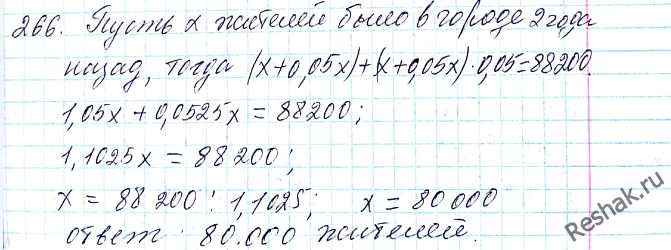 266. Пусть x жителей было в городе 2 года
назад, тогда (x+0,05x)+(x+0,05x)·0,05=88200.
1,05x + 0,0525x = 88200;
1,1025x = 88200;
x = 88 200 : 1,1025; x = 80 000
ответ: 80.000 жителей.
Reshak.ru